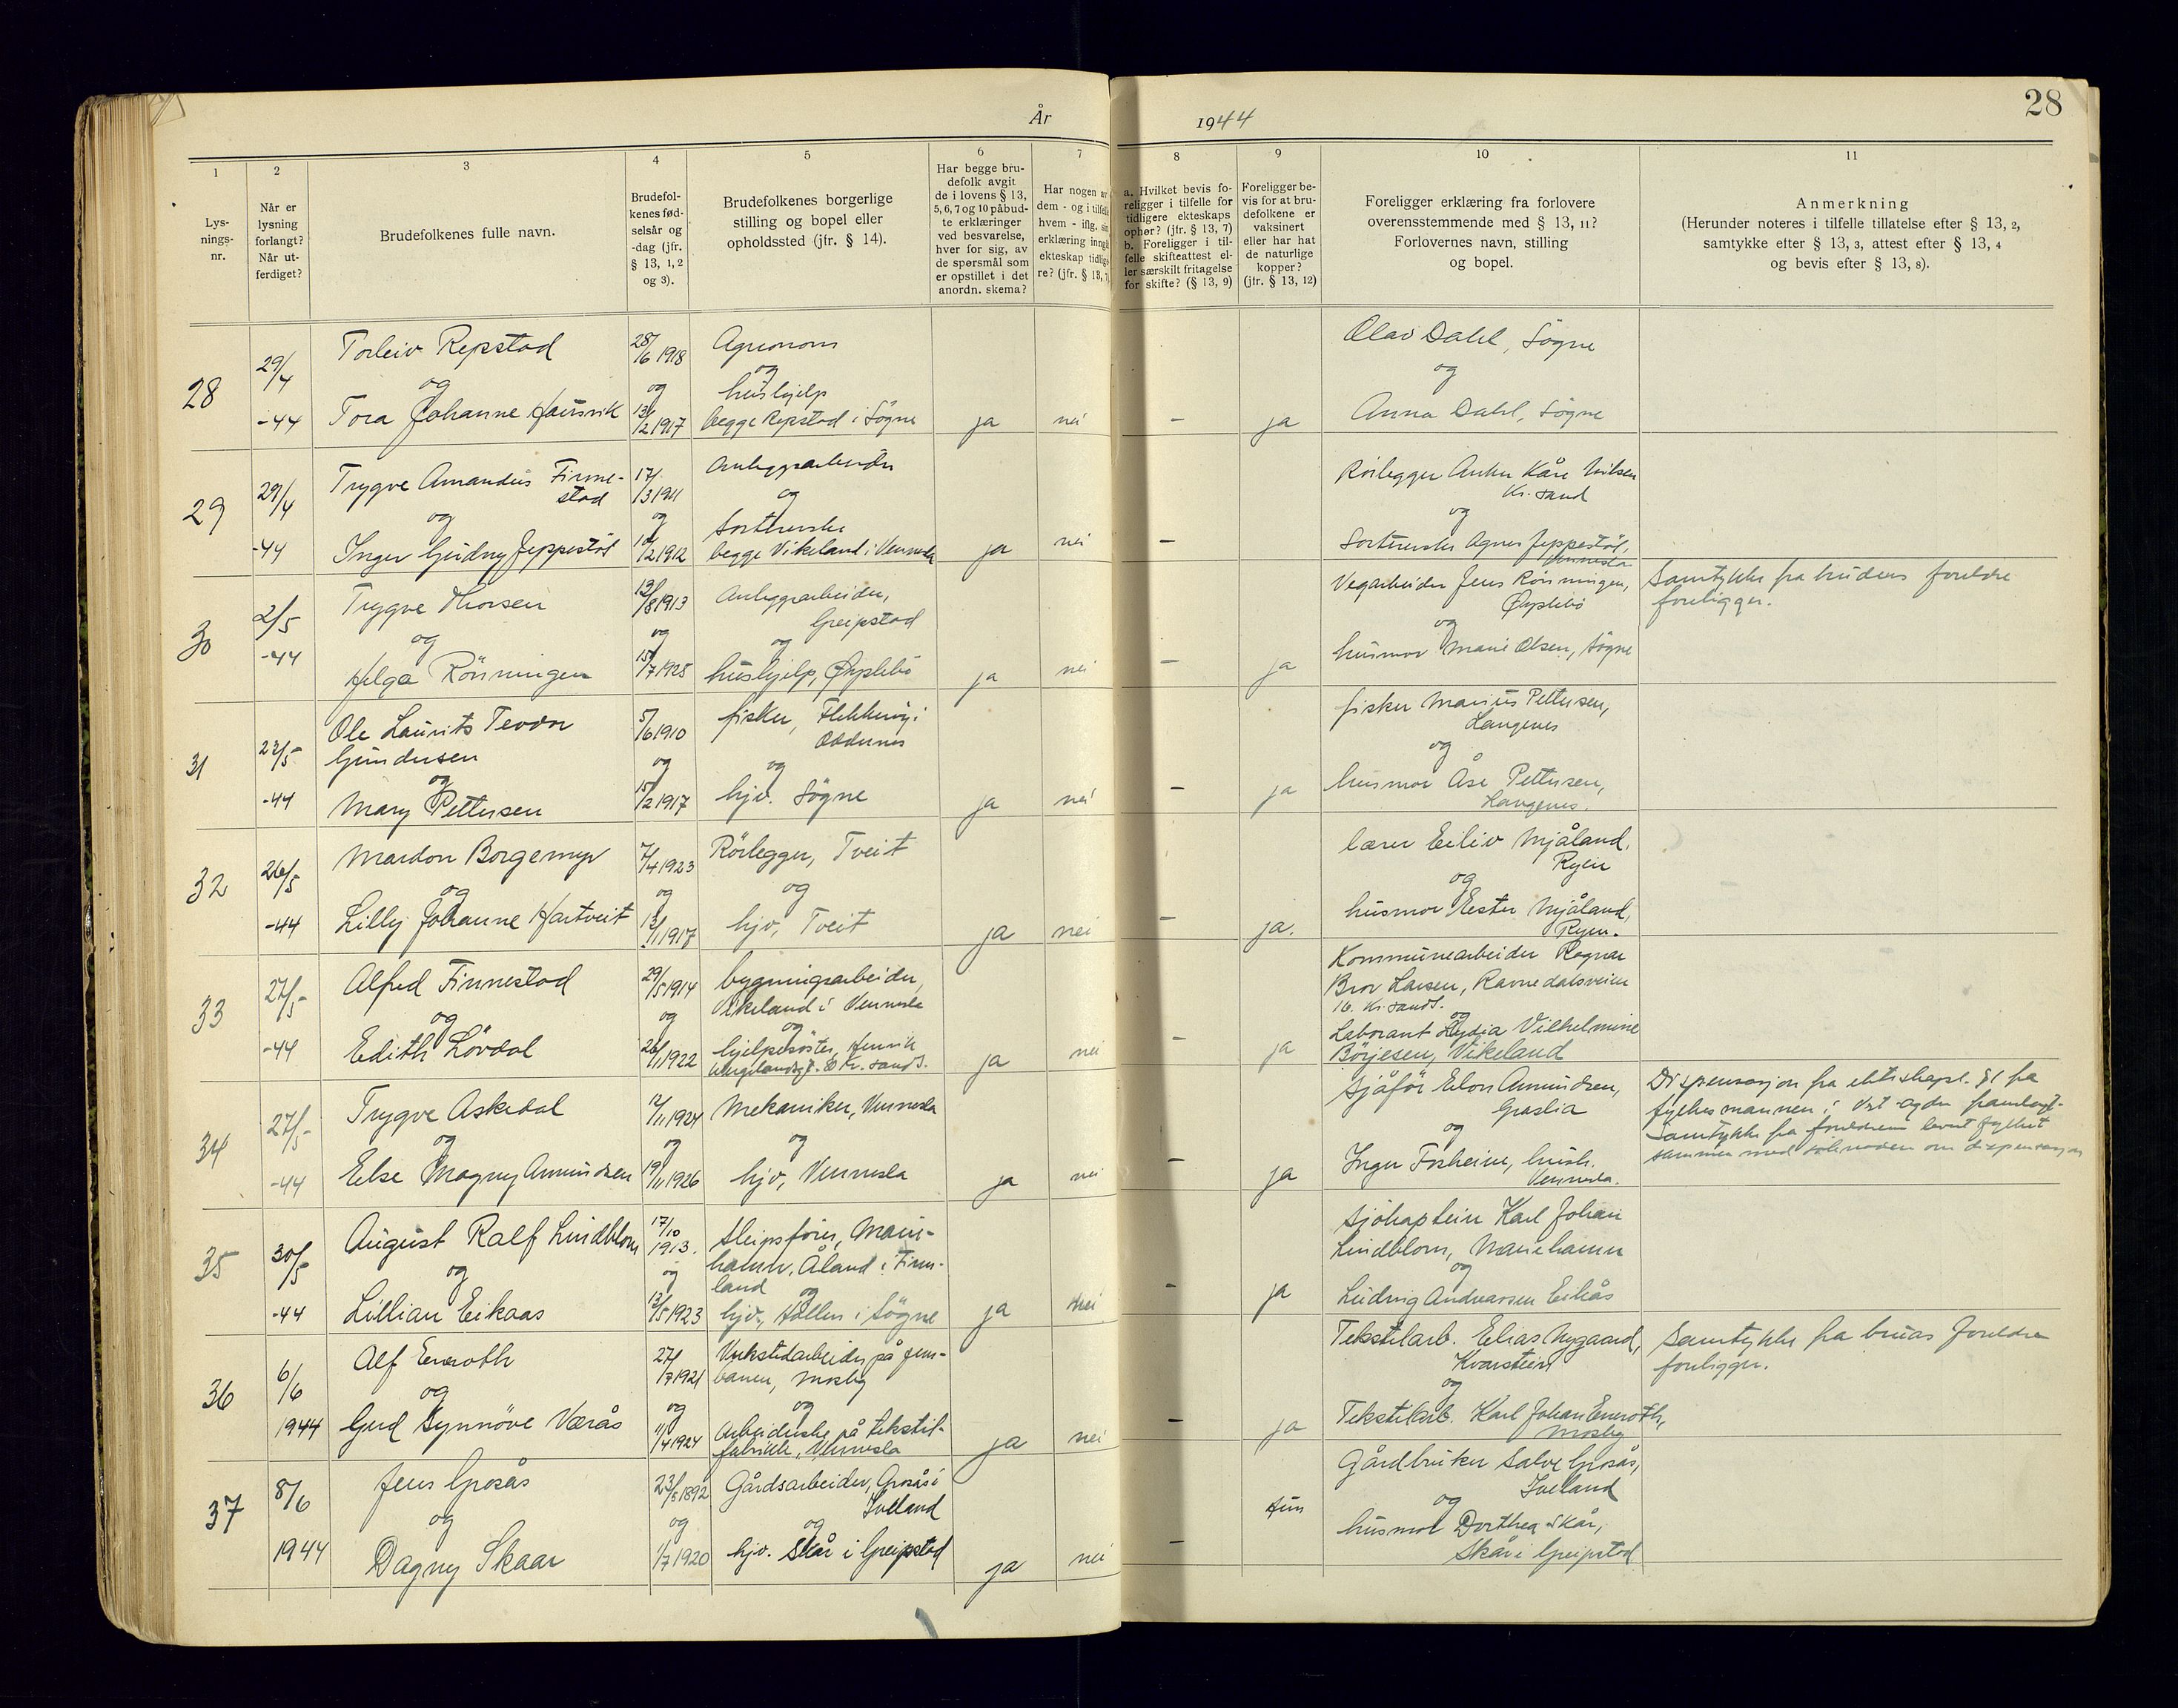 År 1944
28
1
2
3
4
5
6
7
8
9
10
11
Lys-
nings-
nr.
Når er
lysning
forlangt?
Når ut-
ferdiget?
Brudefolkenes fulle navn.
Brudefol-
kenes fød-
selsår og
-dag (jfr.
§ 13, 1, 2
og 3).
Brudefolkenes borgerlige
stilling og bopel eller
opholdssted (jfr. § 14).
Har begge bru-
defolk avgit
de i lovens § 13,
5, 6, 7 og 10 påbud-
te erklæringer
ved besvarelse,
hver for sig, av
de spørsmål som
er opstillet i det
anordn. skema?
Har nogen av
dem - og i tilfelle
hvem - iflg. sin
erklæring inngå
ekteskap tidlige
re? (jfr. § 13, 7)
a. Hvilket bevis fo-
religger i tilfelle for
tidligere ekteskaps
ophør? (jfr. § 13, 7)
b. Foreligger i til-
felle skifteattest el-
ler særskilt fritagelse
for skifte? (§ 13, 9)
Foreligger be-
vis for at bru-
defolkene er
vaksinert
eller har hat
de naturlige
kopper?
(jfr. § 13, 12)
Foreligger erklæring fra forlovere
overensstemmende med § 13, 11?
Forlovernes navn, stilling
og bopel.
Anmerkning
(Herunder noteres i tilfelle tillatelse efter § 13, 2,
samtykke efter § 13, 3, attest efter § 13, 4
og bevis efter § 13, 8).
28
29/4
-44
Torleiv Repstad
og
Tora Johanne Hausvik
28/6 1918
og
13/2 1917
Agronom
og
hushjelp
begge Repstad i Søgne
ja
nei
-
ja
Olav Dahl, Søgne
og
Anna Dahl, Søgne
29
29/4
-44
Trygve Amandus Finne-
stad
og
Inger Gudny Jeppestøl
17/3 1911
og
/2 1912
Anleggsarbeider
og
Sorterske
begge Vikeland i Vennesla
ja
nei
-
Rørlegger Anker Kåre Nilsen
Kr.sand
og
Sorterske Agnes Jeppestøl,
Vennesla
30
2/5
-44
Trygve Thorsen
og
Helga Rönningen
12/8 1913
og
15/7 1925
Anleggsarbeider,
Greipstad
og
hushjelp, Øyslebö
ja
nei
-
ja
Vegarbeider Jens Rönningen,
Øyslebö
og
husmor Marie Olsen, Søgne
Samtykke fra brudens foreldre
foreligger.
31
27/5
-44
Ole Laurits Teodor
Gundersen
og
Mary Pettersen
5/6 1910
og
15/2 1917
fisker, Flekkerøy i
Oddernes
og
hjv. Søgne
ja
nei
-
ja
fisker Marius Pettersen,
Langenes
og
husmor Åse Pettersen,
Langenes.
32
26/5
-44
Mardon Borgemyr
og
Lilly Johanne Hartveit
7/4 1923
og
13/1 1917
Rörlegger, Tveit
og
hjv, Tveit
ja
nei
-
ja.
lærer Eiliv Mjåland,
Ryen
og
husmor Ester Mjåland,
Ryen.
33
27/5
-44
Alfred Finnestad
og
Edith Lövdal
29/5 1914
og
26/1 1922
bygningsarbeider,
Vikeland i Vennesla
og
hjelpesöster, Henrik
Wergelandsgt. Kr.sand S.
ja
nei
-
ja
Kommunearbeider Ragnar
Bror Larsen, Ravnedalsveien
16. Kr.sand S.
og
Laborant Lydia Vilhelmine
Börjesen, Vikeland
34
27/5
-44
Trygve Askedal
og
Else Magny Amundsen
12/11 1924
og
19/11 1926
Mekaniker, Vennesla
og
hjv, Vennesla
ja
nei
-
ja
Sjåför Elon Amundsen,
Graslia
og
Inger Fosheim, hush.
Vennesla.
Dispensasjon fra ekteskapsl. § 1 fra
fylkesmannen i Vest-Agder framlagt.
Samtykke fra foreldrene levert fylket
sammen med søknaden om dispensasjon
35
30/5
-44
August Ralf Lindblom
og
Lillian Eikaas
17/10
1913.
og
13/5 1923
Sleipsfører, Marie-
hamn, Åland i Finn-
land
og
hjv., Höllen i Søgne
ja
nei
-
ja
Sjökaptein Karl Johan
Lindblom, Mariehamn
og
Ludvig Andreassen Eikås
36
6/6
1944
Alf Eneroth
og
Gerd Synnöve Værås
27/7 1921
og
11/4 1924
Verkstedarbeider på jern-
banen, Mosby
og
Arbeiderske på tekstil-
fabrikk, Vennesla
ja
nei
-
ja
Tekstilarb. Elias Nygaard,
Kvarstein
og
Tekstilarb. Karl Johan Eneroth,
Mosby
Samtykke fra bruas foreldre
foreligger.
37
8/6
1944
Jens Grosås
og
Dagny Skaar
23/8 1892
og
1/7 1920
Gårdsarbeider, Grosås i
Iveland
og
hjv. Skår i Greipstad
ja
nei
-
Hun
Gårdbruker Salve Grosås,
Iveland
og
husmor Dorthea Skår,
Skår i Greipstad